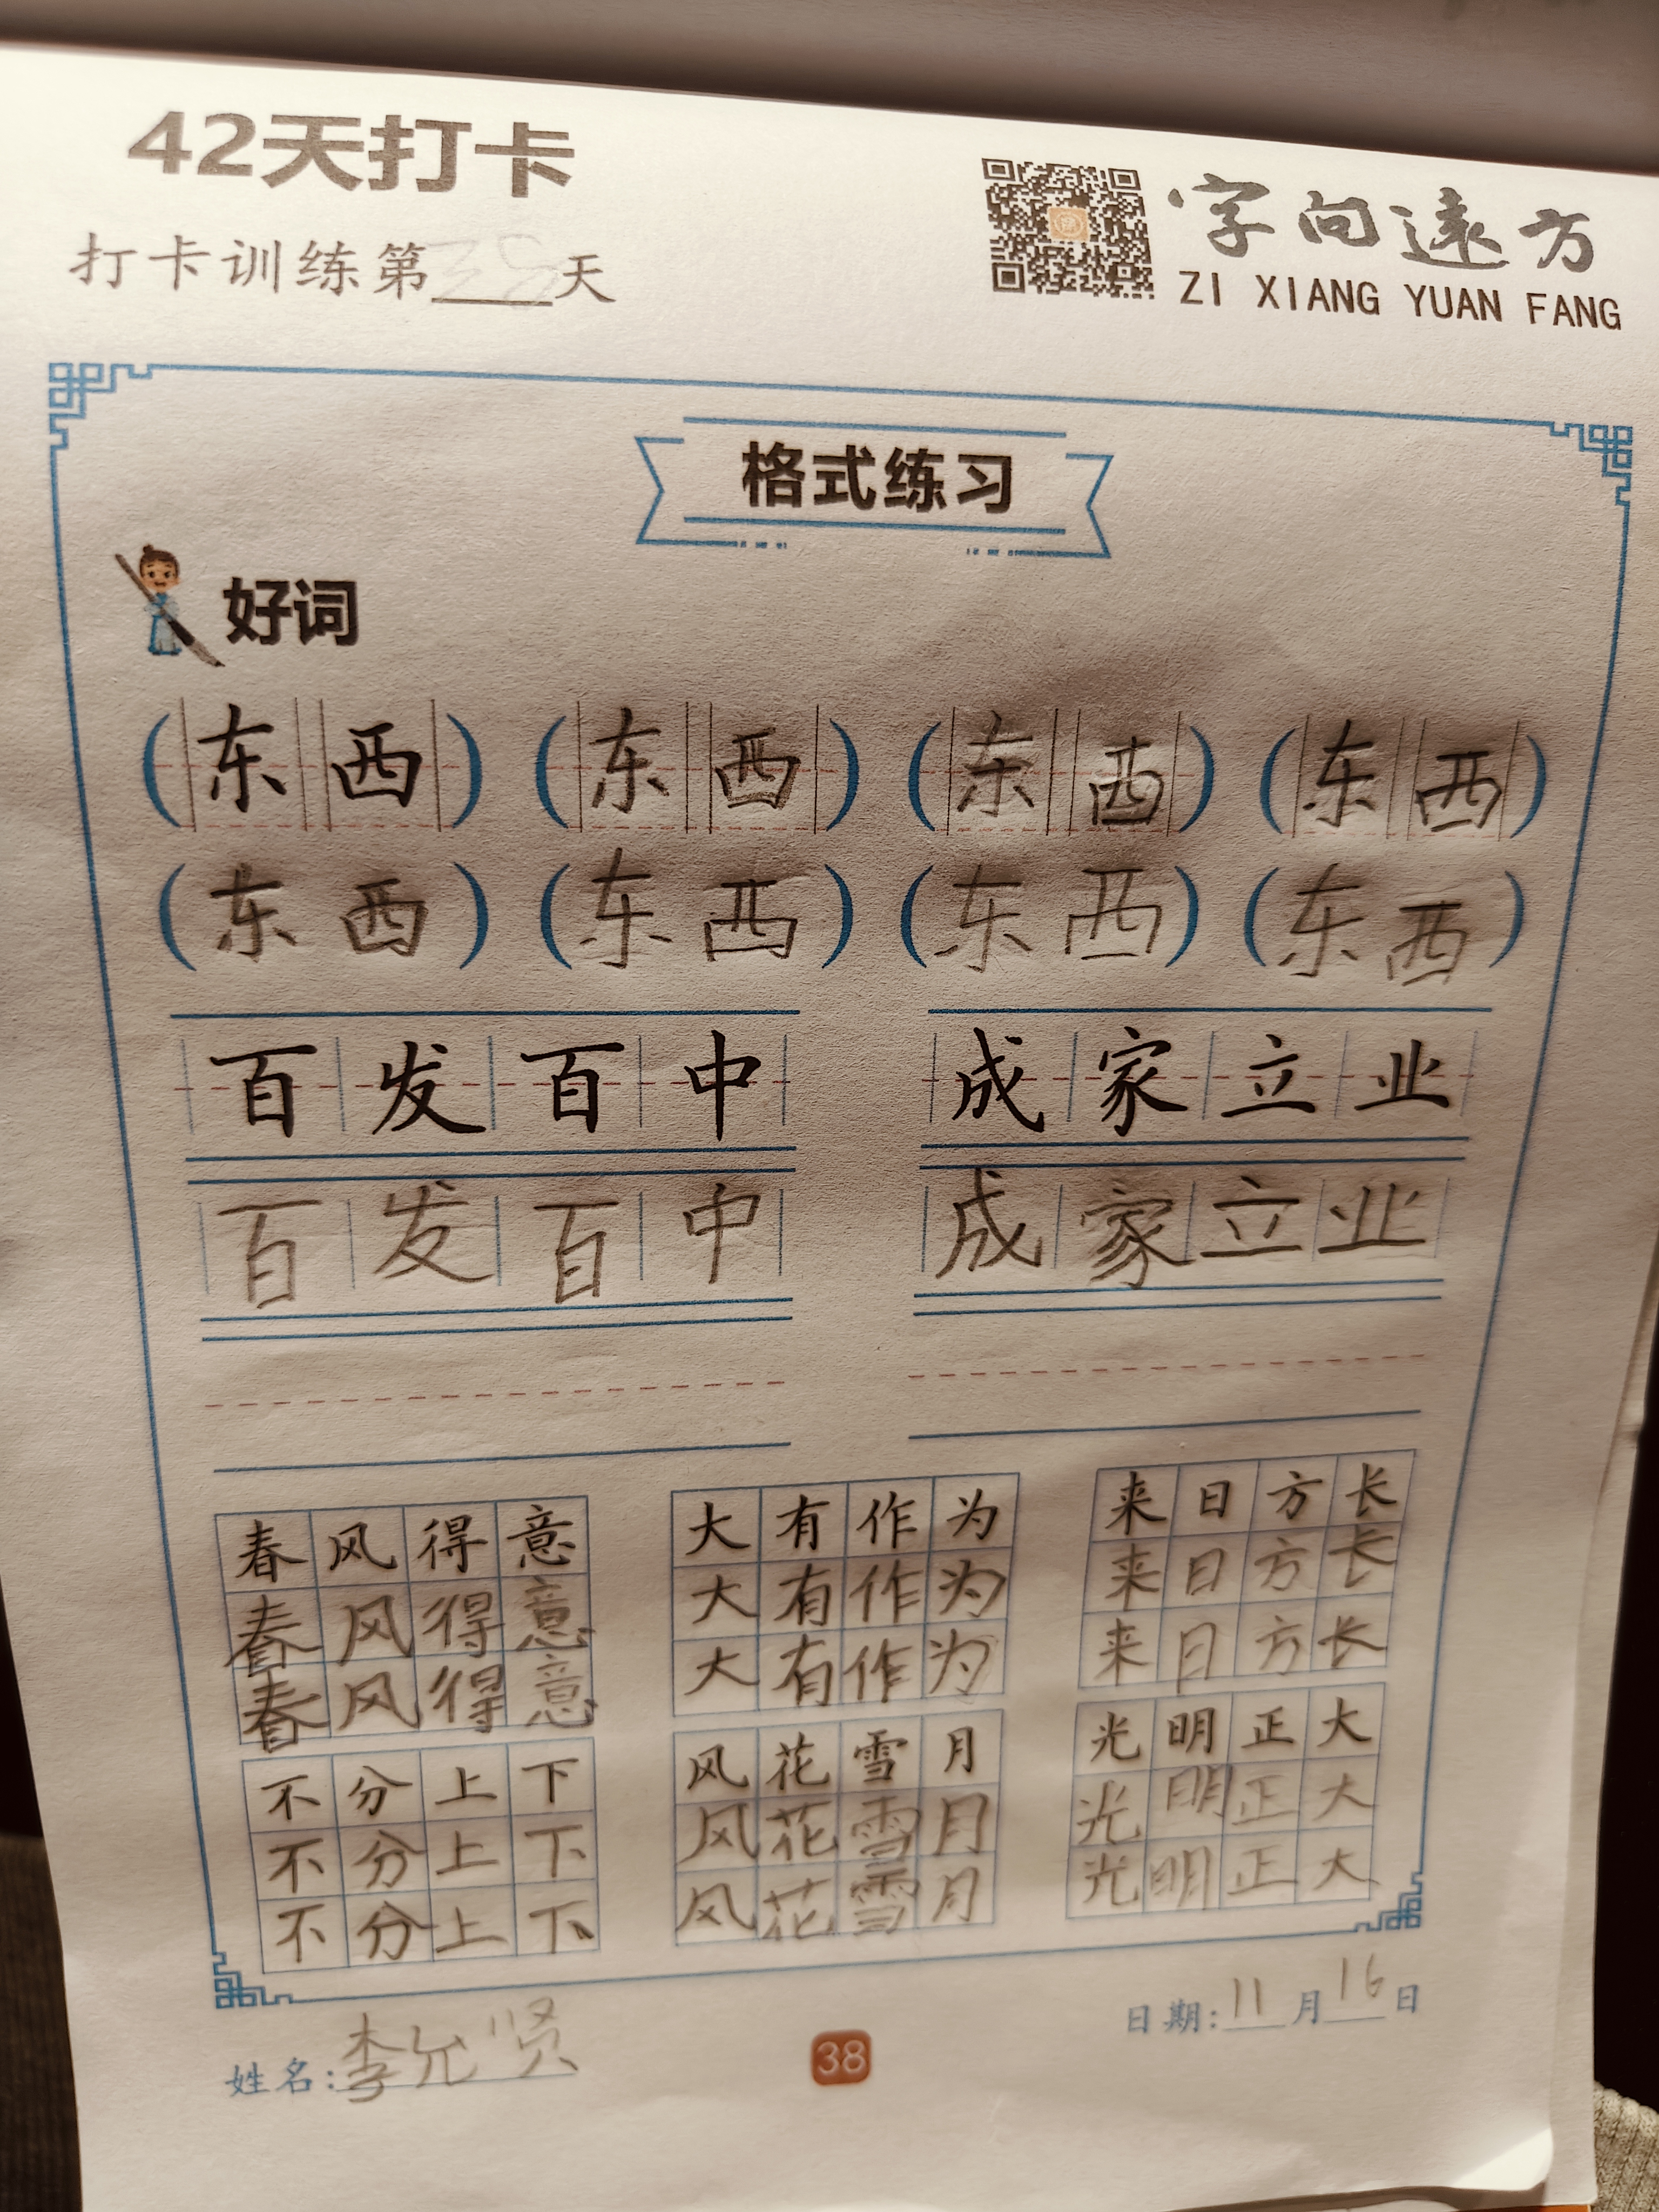 42天打卡
打卡训练第38天
字向远方
ZI XIANG YUAN FANG
格式练习
好词
(东西) (东西) (东西) (东西)
(东西) (东西) (东西) (东西)
百发百中 成家立业
百发百中 成家立业
春风得意 大有作为 来日方长
春风得意 大有作为 来日方长
春风得意 大有作为 来日方长
不分上下 风花雪月 光明正大
不分上下 风花雪月 光明正大
不分上下 风花雪月 光明正大
姓名:李允贤
38
日期:11月16日